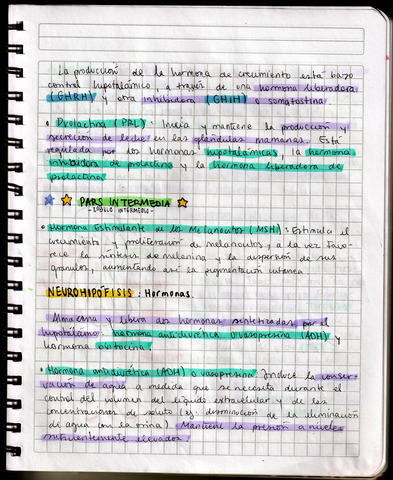 La producción de la hormona de crecimiento está bajo
control hipotalámico, a través de una hormona liberadora
(GHRH) y otra inhibidora (GHIH) o somatostina.
• Prolactina (PRL): Inicia y mantiene la producción y
secreción de leche en las glándulas mamarias. Está
regulada por dos hormonas hipotalámicas, la hormona
inhibidora de prolactina y la hormona liberadora de
prolactina.
PARS INTERMEDIA
- LÓBULO INTERMEDIO -
• Hormona Estimulante de los Melanocitos (MSH): Estimula el
crecimiento y proliferación de melanocitos, a la vez favo-
rece la síntesis de melanina y la dispersión de sus
gránulos, aumentando así la pigmentación cutánea
NEUROHIPÓFISIS: Hormonas.
Almacena y libera dos hormonas sintetizadas por el
hipotálamo: hormona antidiurética o vasopresina (ADH) y
hormona oxitocina.
• Hormona antidiurética (ADH) o vasopresina: Induce la conser-
vación de agua a medida que se necesita durante el
control del volumen del líquido extracelular y de las
concentraciones de soluto (ej. disminución de la eliminación
de agua con la orina). Mantiene la presión a niveles
suficientemente elevados.